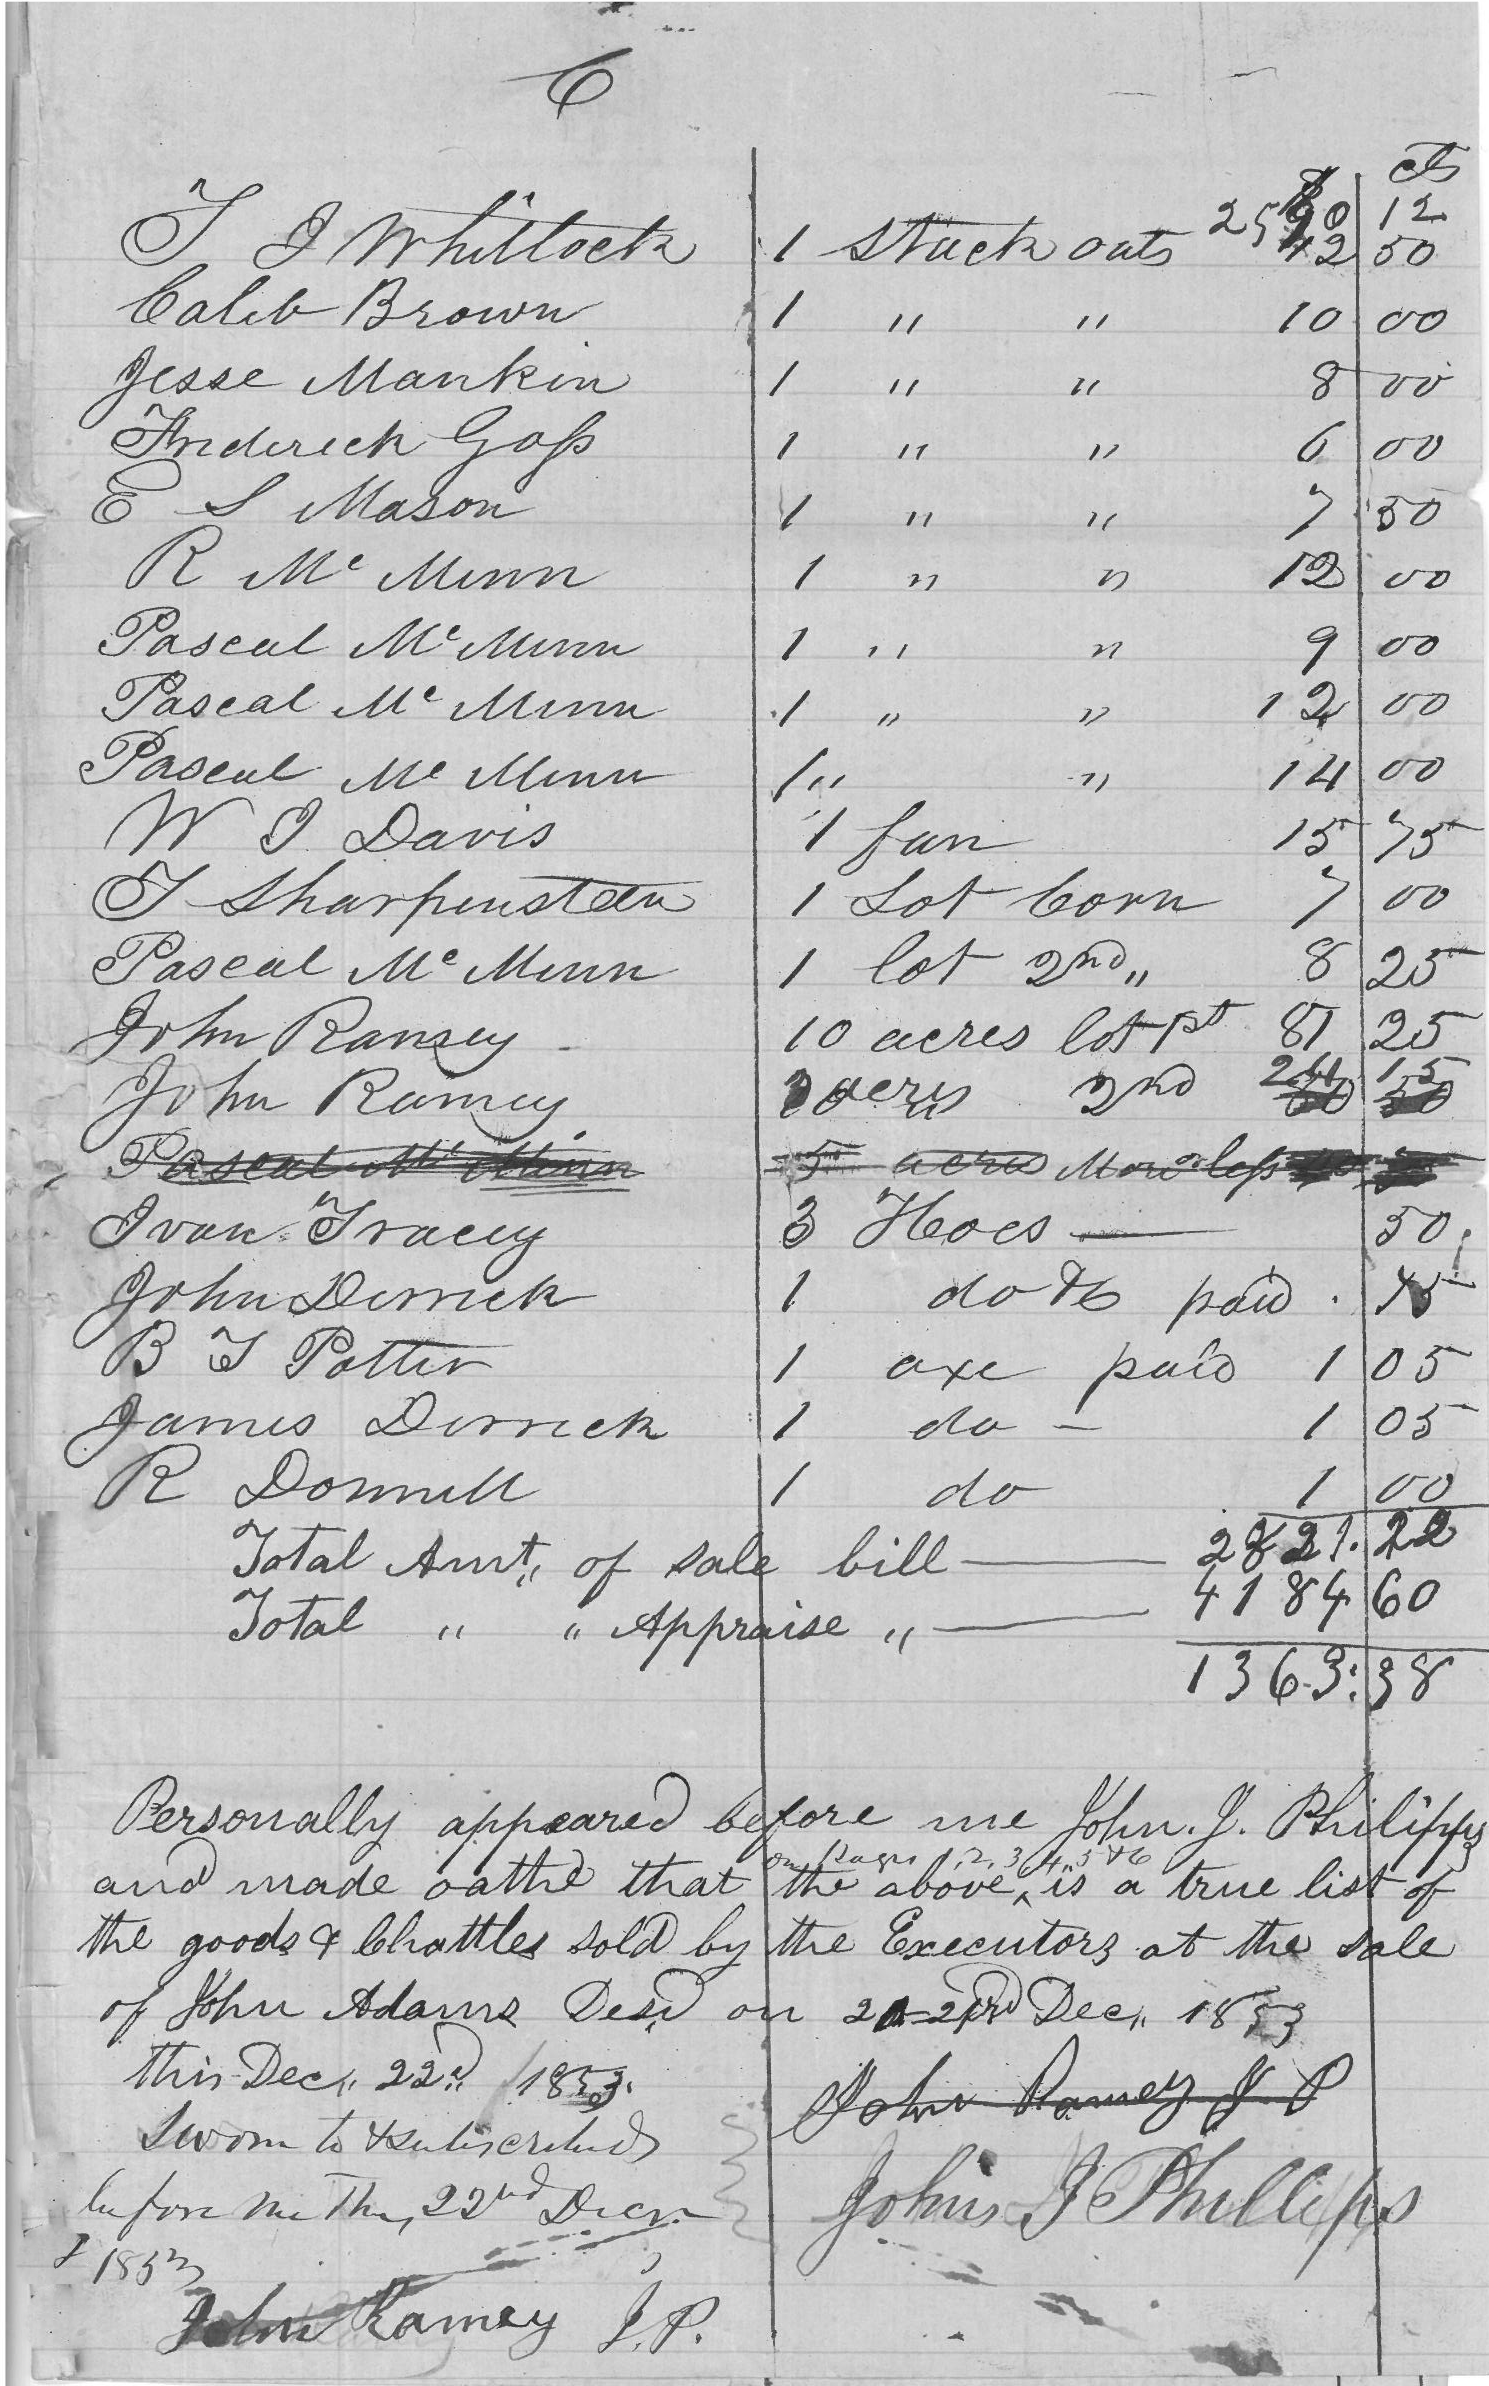 6
$ cts
2590 12
T J Whitlock 1 Stack oats 42 50
Caleb Brown 1 " " 10 00
Jesse Mankin 1 " " 8 00
Frederick Goss 1 " " 6 00
E S Mason 1 " " 7 50
R Mc Minn 1 " " 12 00
Pascal Mc Minn 1 " " 9 00
Pascal Mc Minn 1 " " 12 00
Pascal Mc Minn 1 " " 14 00
W J Davis 1 fan 15 75
T Sharpensteen 1 Lot Corn 7 00
Pascal Mc Minn 1 lot 2nd " 8 25
John Ramey 10 acres lot 1st 81 25
John Ramey acres 2nd 15
Pascal Mc Minn 5 acres More or less
Ivan Tracey 3 Hoes — 50
John Derrick 1 do paid
B T Potter 1 axe paid 1 05
James Derrick 1 do - 1 05
R Donnell 1 do 1 00
Total Amt,, of sale bill — 2821.22
Total " " Appraise " — 4184 60
1363:38
Personally appeared before me John. J. Philipps
on Pages 1,2,3,4,5 & 6
and made oathe that the above ^ is a true list of
the goods & Chattles sold by the Executors at the sale
of John Adams Des,d on Dec,, 1853
this Dec,, 22d,, 1853.
John Ramey J P
Sworn to & subscribed
before me this 22nd Decr
1853
John J Phillips
John Ramey J.P.